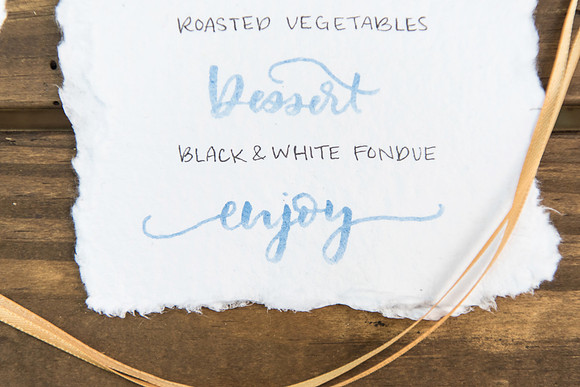 ROASTED VEGETABLES
Dessert
BLACK & WHITE FONDUE
enjoy